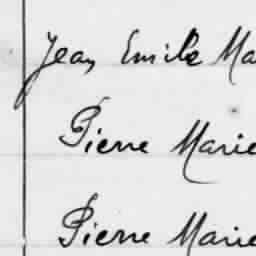 Jean Emile Ma
Pierre Marie
Pierre Marie